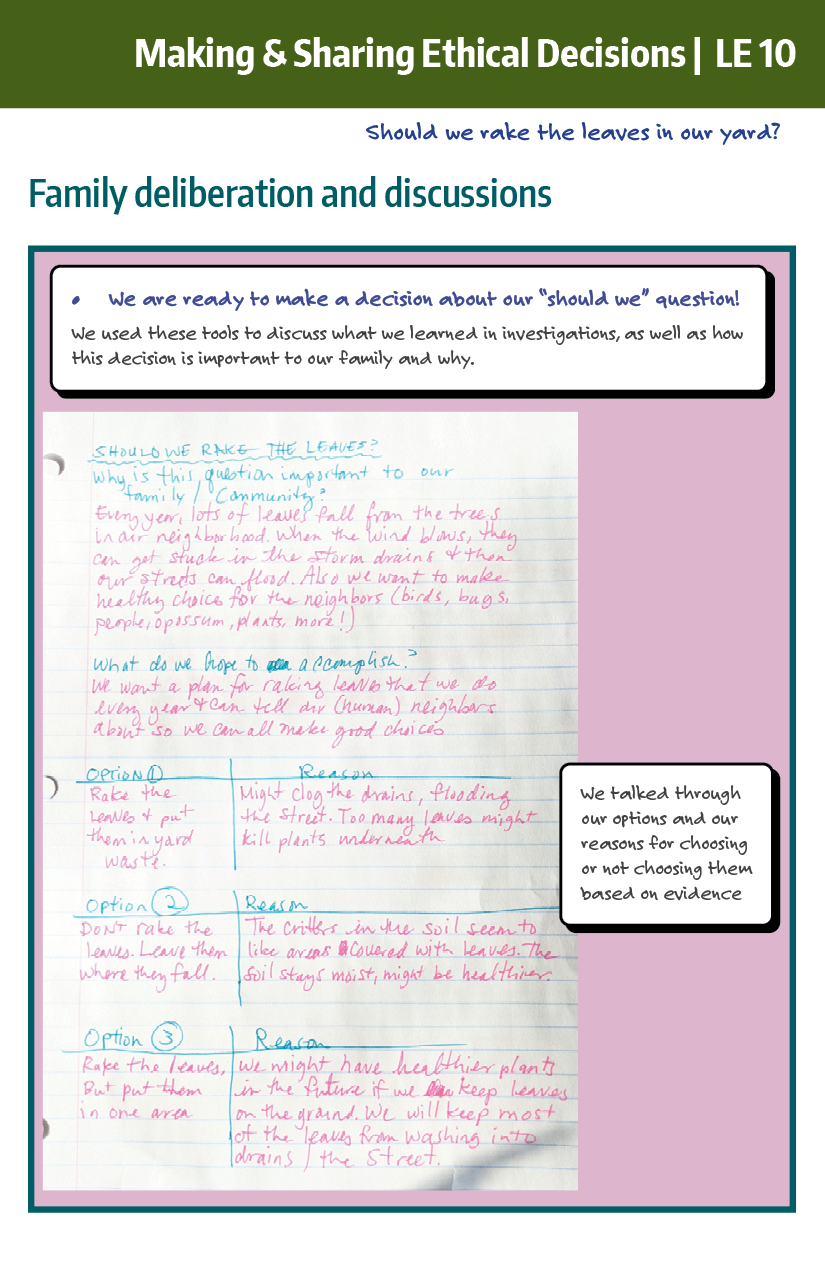 Making & Sharing Ethical Decisions | LE 10
Should we rake the leaves in our yard?
Family deliberation and discussions
• We are ready to make a decision about our “should we” question!
We used these tools to discuss what we learned in investigations, as well as how
this decision is important to our family and why.
SHOULD WE RAKE THE LEAVES?
Why is this question important to our
family / Community?
Every year, lots of leaves fall from the trees
in our neighborhood. When the wind blows, they
can get stuck in the storm drains & then
our streets can flood. Also we want to make
healthy choice for the neighbors (birds, bugs,
people, opossum, plants, more!)
What do we hope to accomplish?
We want a plan for raking leaves that we do
every year & can tell our (human) neighbors
about so we can all make good choices
Option 1 Reason
Rake the
leaves & put
them in yard
waste.
Might clog the drains, flooding
the street. Too many leaves might
kill plants underneath
Option 2 Reason
Don't rake the
leaves. Leave them
where they fall.
The critters in the soil seem to
like areas covered with leaves. The
soil stays moist, might be healthier.
Option 3 Reason
Rake the leaves,
But put them
in one area
We might have healthier plants
in the future if we keep leaves
on the ground. We will keep most
of the leaves from washing into
drains / the street.
We talked through
our options and our
reasons for choosing
or not choosing them
based on evidence